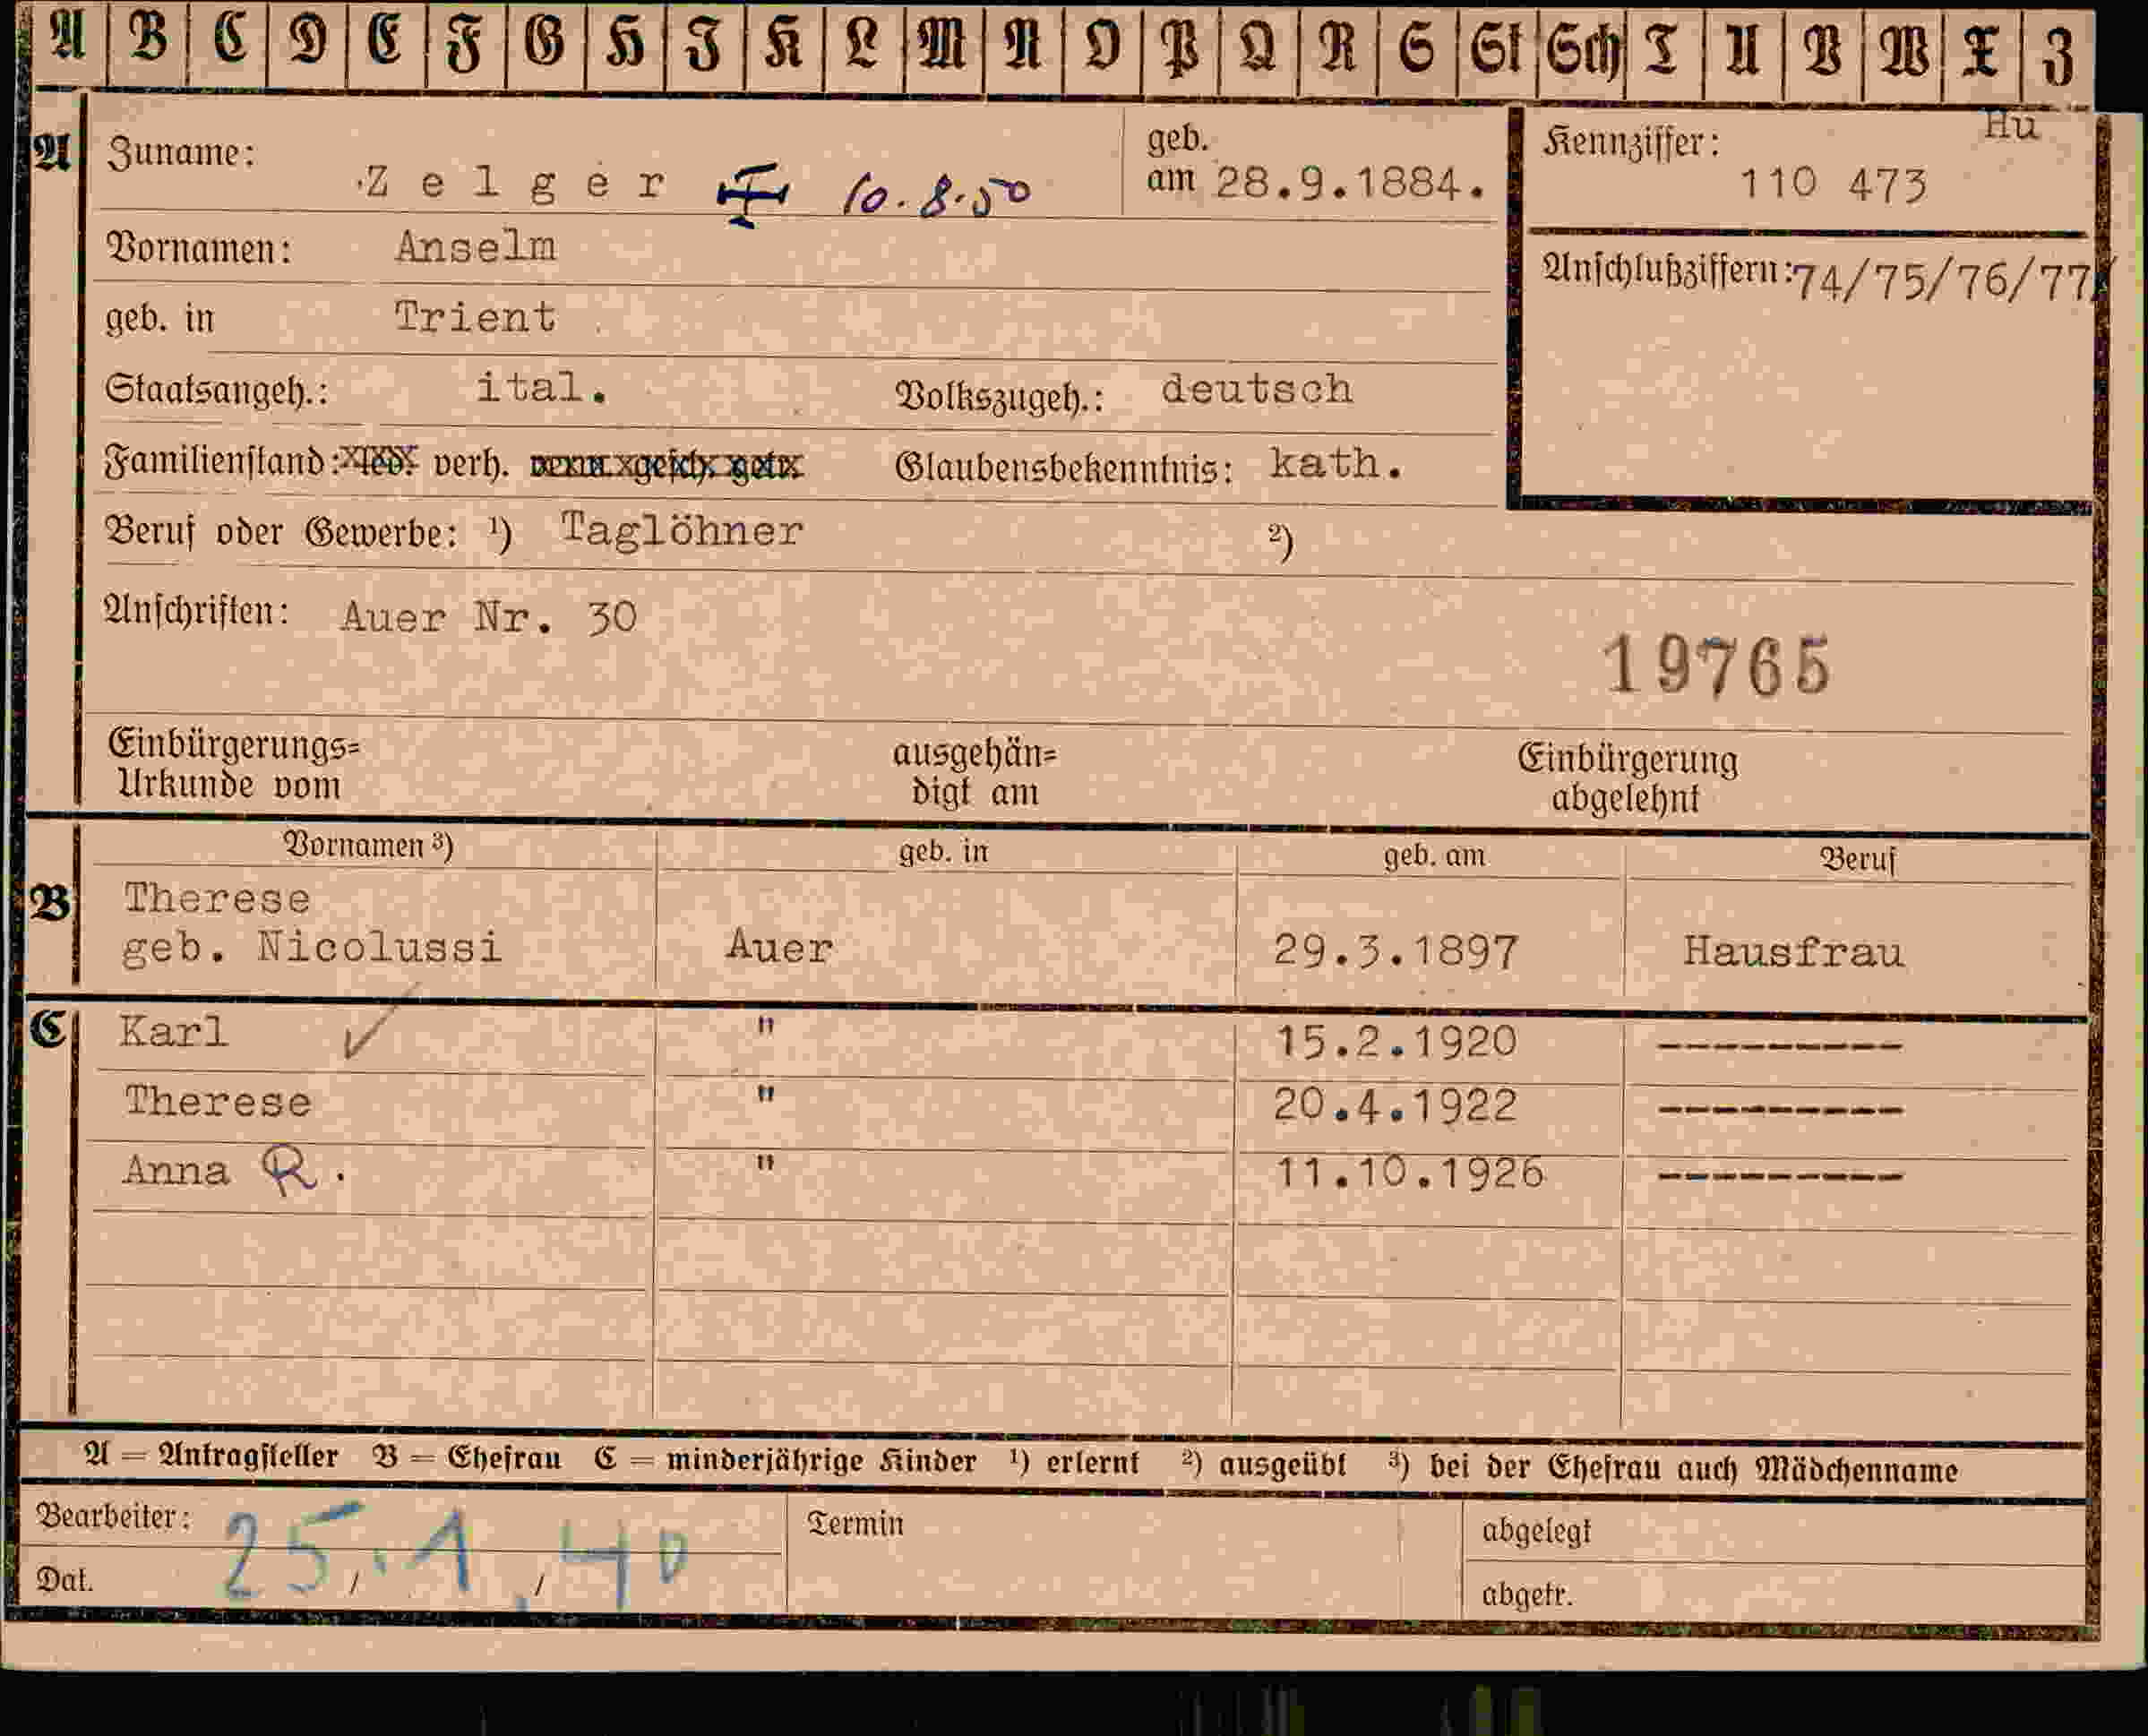 A B C D E F G H I K L M N O P Q R S St Sch T U V W X Z
Hu
A Zuname: Zelger 10.8.50 geb. am 28.9.1884. Kennziffer: 110 473
Vornamen: Anselm
Anschlußziffern: 74/75/76/77/
geb. in Trient
Staatsangeh.: ital. Volkszugeh.: deutsch
Familienstand: led. verh. gesch. Glaubensbekenntnis: kath.
Beruf oder Gewerbe: ¹) Taglöhner ²)
Anschriften: Auer Nr. 30
19765
Einbürgerungs= ausgehän= Einbürgerung
Urkunde vom digt am abgelehnt
Vornamen ³) geb. in geb. am Beruf
B Therese
geb. Nicolussi Auer 29.3.1897 Hausfrau
C Karl ✓ " 15.2.1920 ---------
Therese " 20.4.1922 ---------
Anna R. " 11.10.1926 ---------
A = Antragsteller B = Ehefrau C = minderjährige Kinder ¹) erlernt ²) ausgeübt ³) bei der Ehefrau auch Mädchenname
Bearbeiter: Termin abgelegt
Dat. 25.1.40 abgetr.